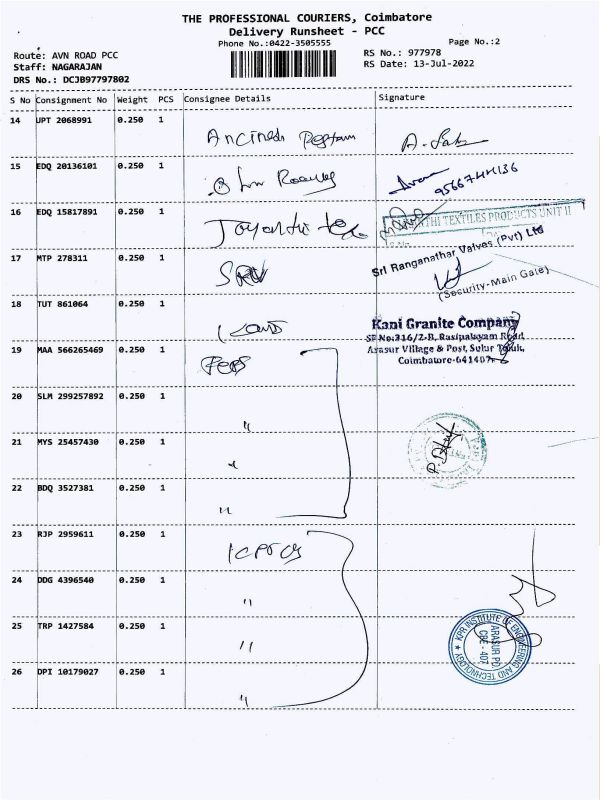 THE PROFESSIONAL COURIERS, Coimbatore
Delivery Runsheet - PCC
Phone No.:0422-3505555
Page No.:2
Route: AVN ROAD PCC
RS No.: 977978
Staff: NAGARAJAN
RS Date: 13-Jul-2022
DRS No.: DCJB97797802
S No Consignment No Weight PCS Consignee Details Signature
14 UPT 2068991 0.250 1
15 EDQ 20136101 0.250 1
9566744136
16 EDQ 15817891 0.250 1
TEXTILES PRODUCTS UNIT II
17 MTP 278311 0.250 1
Sri Ranganathar Valves (Pvt) Ltd
(Security-Main Gate)
18 TUT 861064 0.250 1
Kani Granite Company
SF No:316/2-B, Rasipalayam Road,
Arasur Village & Post, Sulur Taluk,
Coimbatore-641407
19 MAA 566265469 0.250 1
20 SLM 299257892 0.250 1 "
21 MYS 25457430 0.250 1 "
22 BDQ 3527381 0.250 1 "
23 RJP 2959611 0.250 1
24 DDG 4396540 0.250 1 "
25 TRP 1427584 0.250 1 "
KPR INSTITUTE OF ENGINEERING AND TECHNOLOGY ★
ARASUR PO
CBE - 407
26 DPI 10179027 0.250 1 "